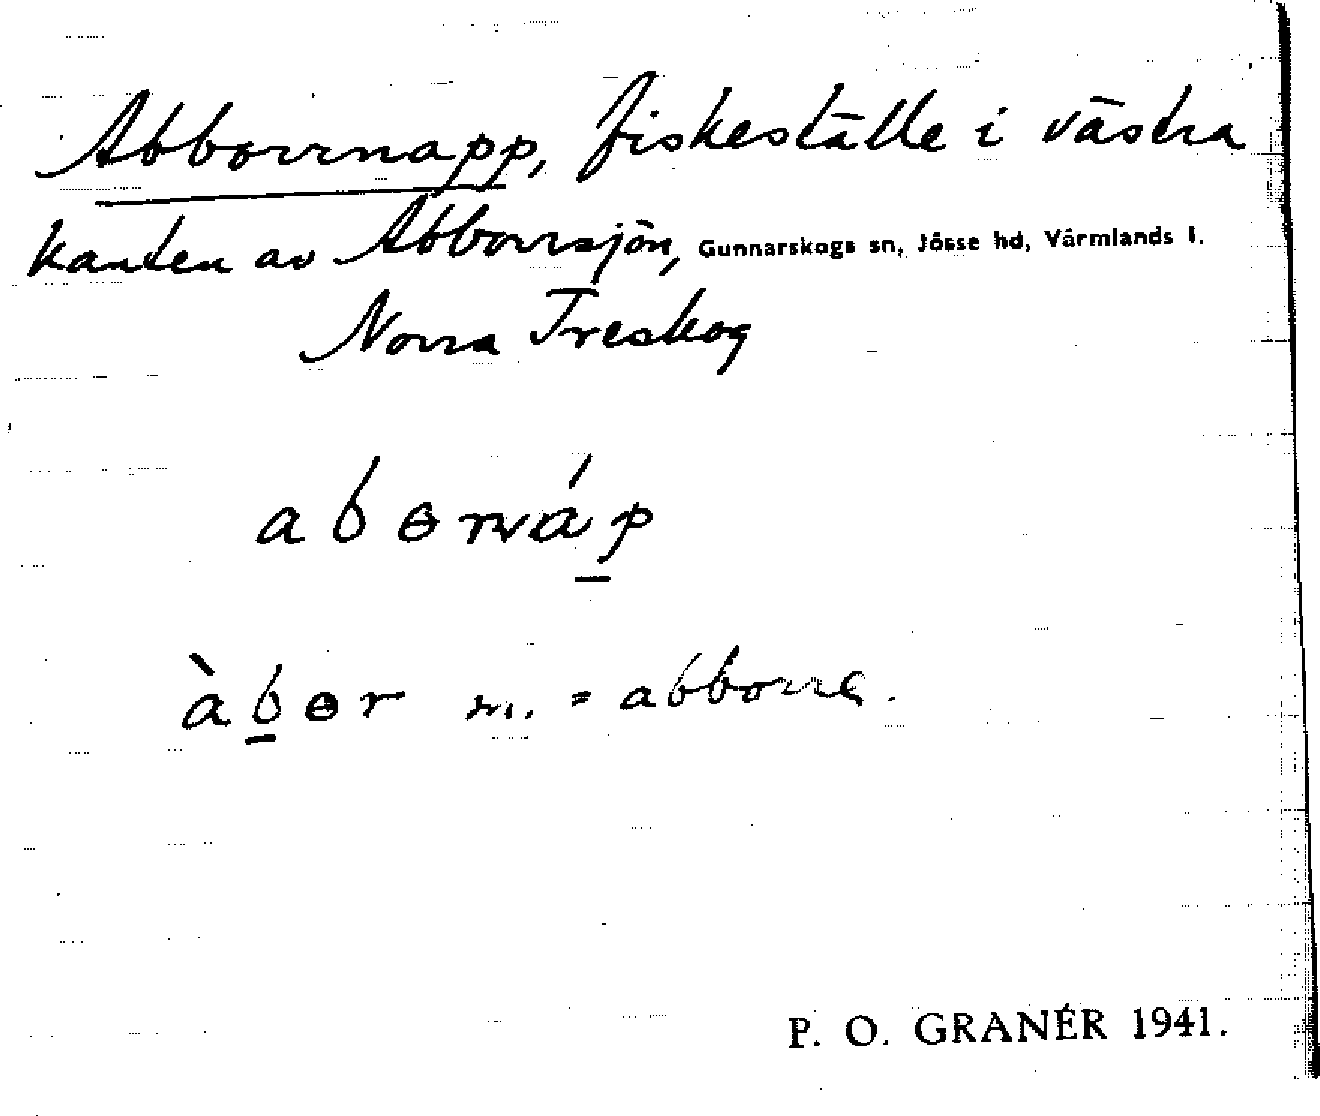 Abborrnapp, fiskeställe i västra
kanten av Abborrsjön, Gunnarskogs sn, Jösse hd, Värmlands l.
Norra Treskog
abɵrnáp̲
àb̲ɵr m. = abborre.
P. O. GRANÉR 1941.